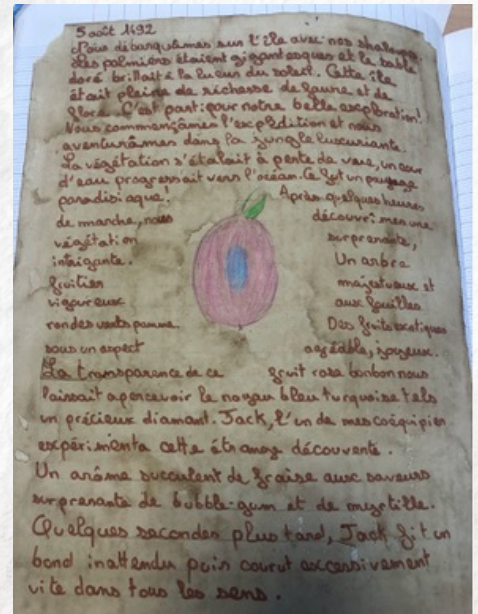 5 août 1492
Nous débarquâmes sur l'île avec nos
Les palmiers étaient gigantesques et le sable
doré brillait à la lueur du soleil. Cette île
était pleine de richesse de faune et de
flore. C'est parti pour notre belle exploration!
Nous commençâmes l'expédition et nous
aventurâmes dans la jungle luxuriante.
La végétation s'étalait à perte de vue, un cour
d'eau progressait vers l'océan. Ce fut un paysage
paradisiaque! Après quelques heures
de marche, nous découvrimes une
végétation surprenante,
intrigante. Un arbre
fruitier majestueux et
vigoureux aux feuilles
rondes verts pomme. Des fruits exotiques
sous un aspect agréable, joyeux.
La transparence de ce fruit rose bonbon nous
laissait apercevoir le noyau bleu turquoise tels
un précieux diamant. Jack, l'un de mes coéquipier
expérimenta cette étrange découverte.
Un arôme succulent de fraise aux saveurs
surprenante de bubble-gum et de myrtille.
Quelques secondes plus tard, Jack fit un
bond inattendu puis courut excessivement
vite dans tous les sens.